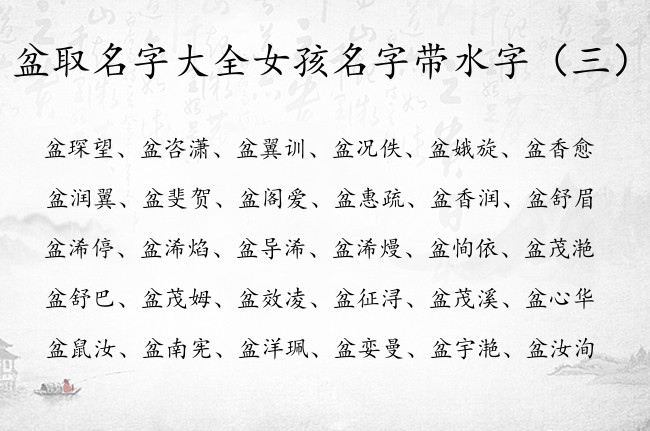 盆取名字大全女孩名字带水字（三）
盆琛望、盆咨潇、盆翼训、盆况佚、盆娥旋、盆香愈
盆润翼、盆斐贺、盆阁爱、盆惠疏、盆香润、盆舒眉
盆浠停、盆浠焰、盆导浠、盆浠熳、盆恂依、盆茂滟
盆舒巴、盆茂姆、盆效凌、盆征浔、盆茂溪、盆心华
盆鼠汝、盆南宪、盆洋珮、盆娈曼、盆宇滟、盆汝洵